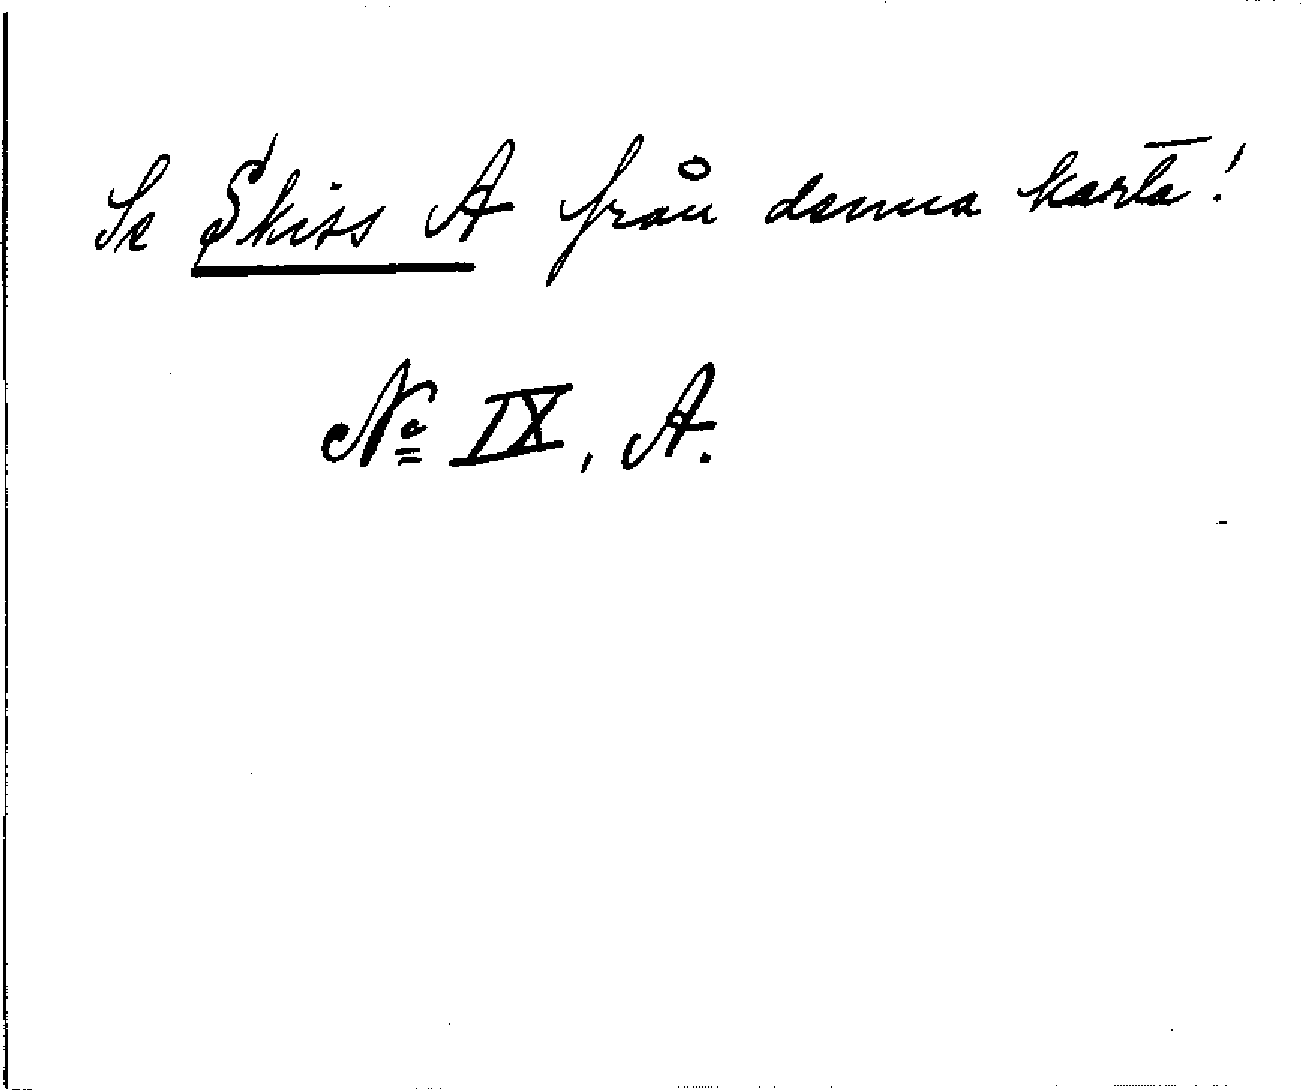 Se Skiss A från denna karta!
Nº IX, A.